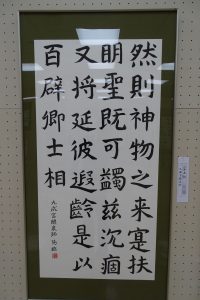 然則神物之来寔扶
明聖既可蠲茲沉痼
又将延彼遐齡是以
百辟卿士相
九成宮醴泉銘